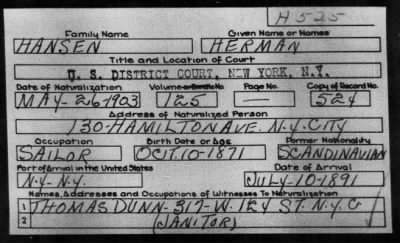 H 525
Family Name Given Name or Names
HANSEN HERMAN
Title and Location of Court
U. S. DISTRICT COURT, NEW YORK, N.Y.
Date of Naturalization Volume or Bundle No. Page No. Copy of Record No.
MAY-26-1903 125 — 524
Address of Naturalized Person
130-HAMILTON AVE. N.Y. CITY
Occupation Birth Date or Age Former Nationality
SAILOR OCT. 10-1871 SCANDINAVIAN
Port of Arrival in the United States Date of Arrival
N.Y.-N.Y. JULY-10-1891
Names, Addresses and Occupations of Witnesses To Naturalization
1 THOMAS DUNN-317-W. 124 ST. N.Y.C
2 (JANITOR)